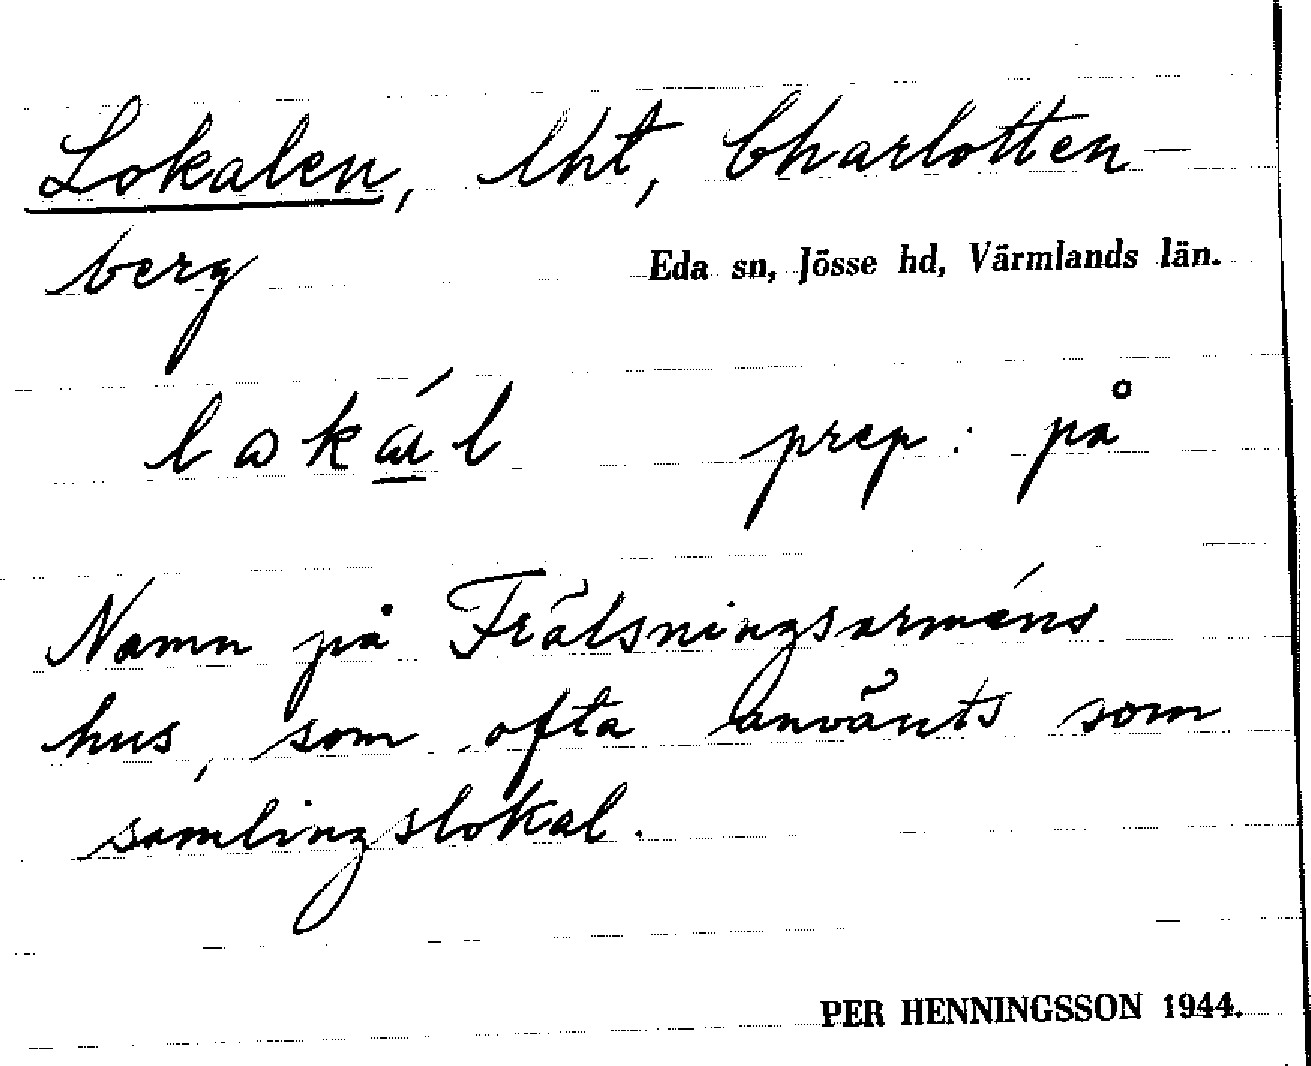 Lokalen, lht, Charlotten-
berg Eda sn, Jösse hd, Värmlands län.
lokál prep: på
Namn på Frälsningsarméns
hus, som ofta använts som
samlingslokal.
PER HENNINGSSON 1944.